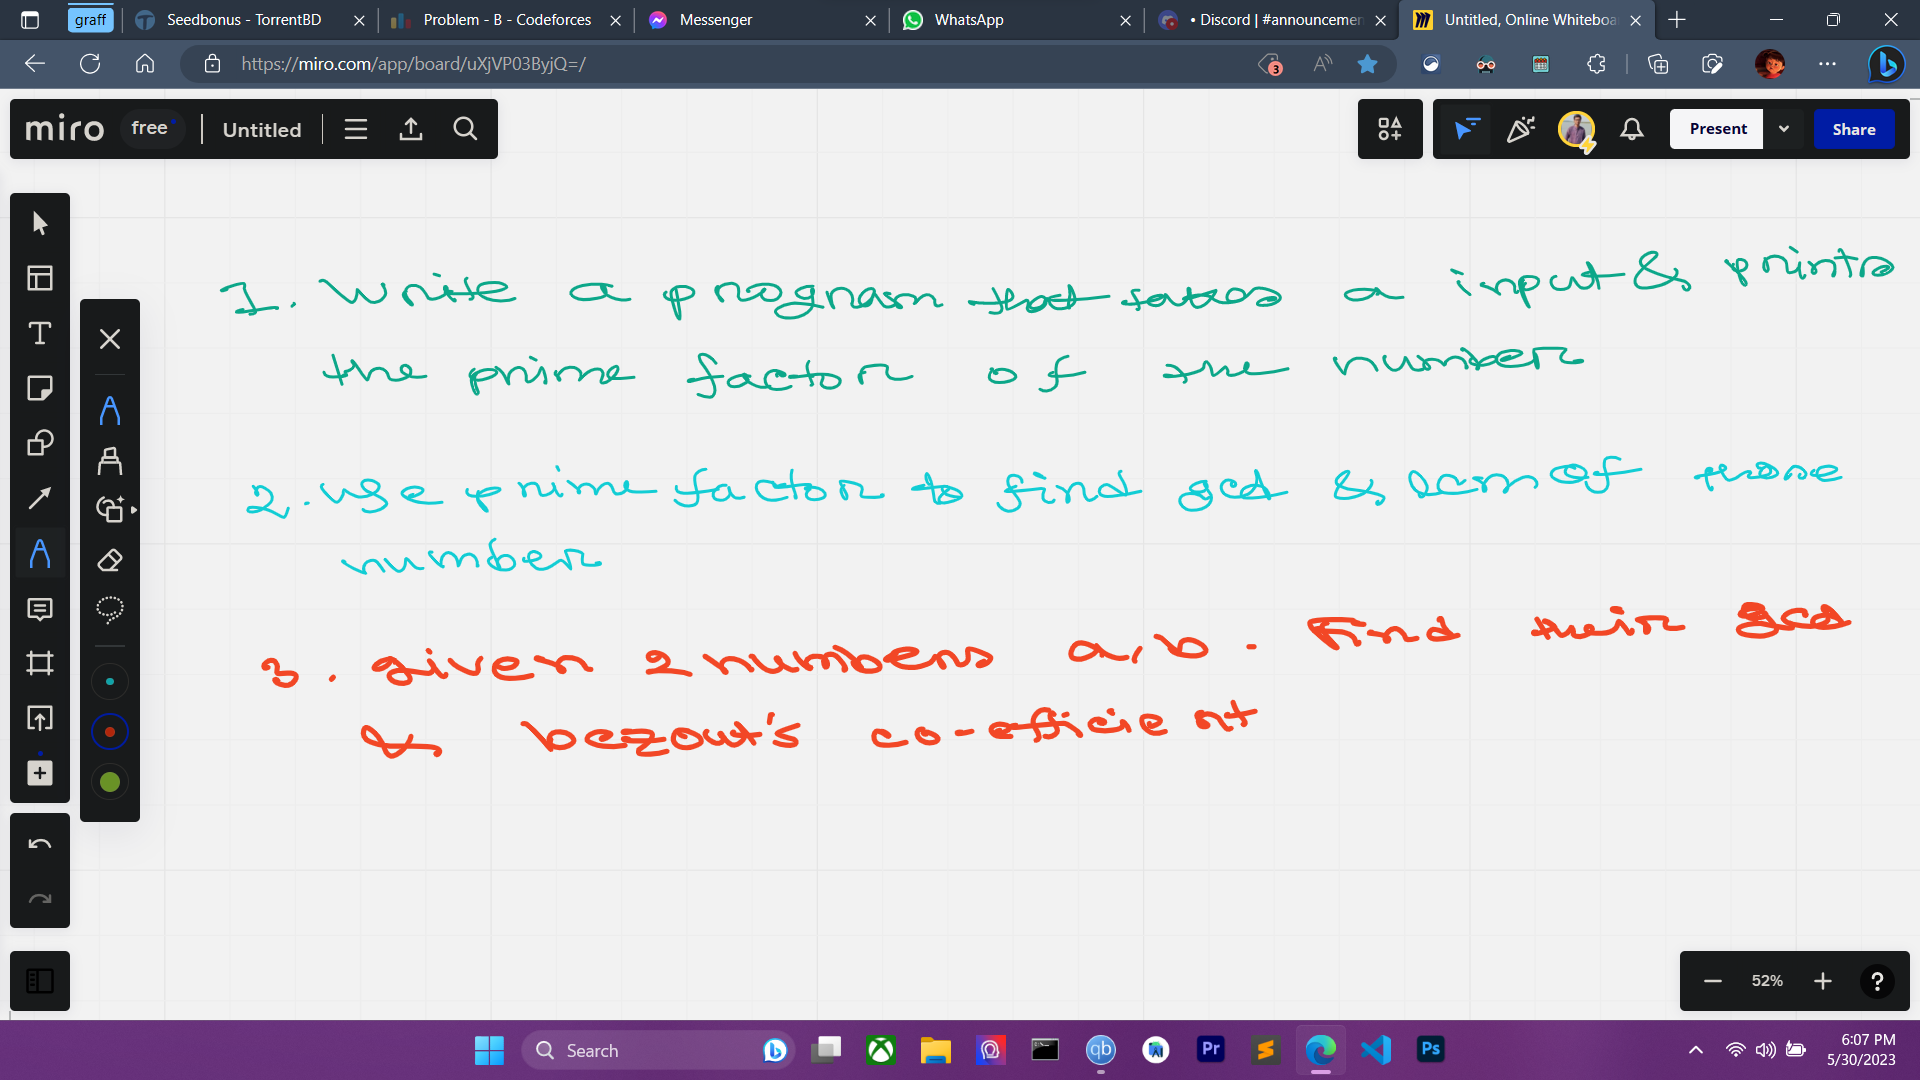 graff
Seedbonus - TorrentBD
Problem - B - Codeforces
Messenger
WhatsApp
• Discord | #announcemen
Untitled, Online Whiteboa
https://miro.com/app/board/uXjVP03ByjQ=/
3
miro free Untitled
Present
Share
1. Write a program that takes a input & prints
the prime factor of the number
2. Use prime factor to find gcd & lcm of those
number
3. given 2 numbers a, b. Find their gcd
& bezout's co-efficient
52%
Search
qb
Pr
Ps
6:07 PM
5/30/2023